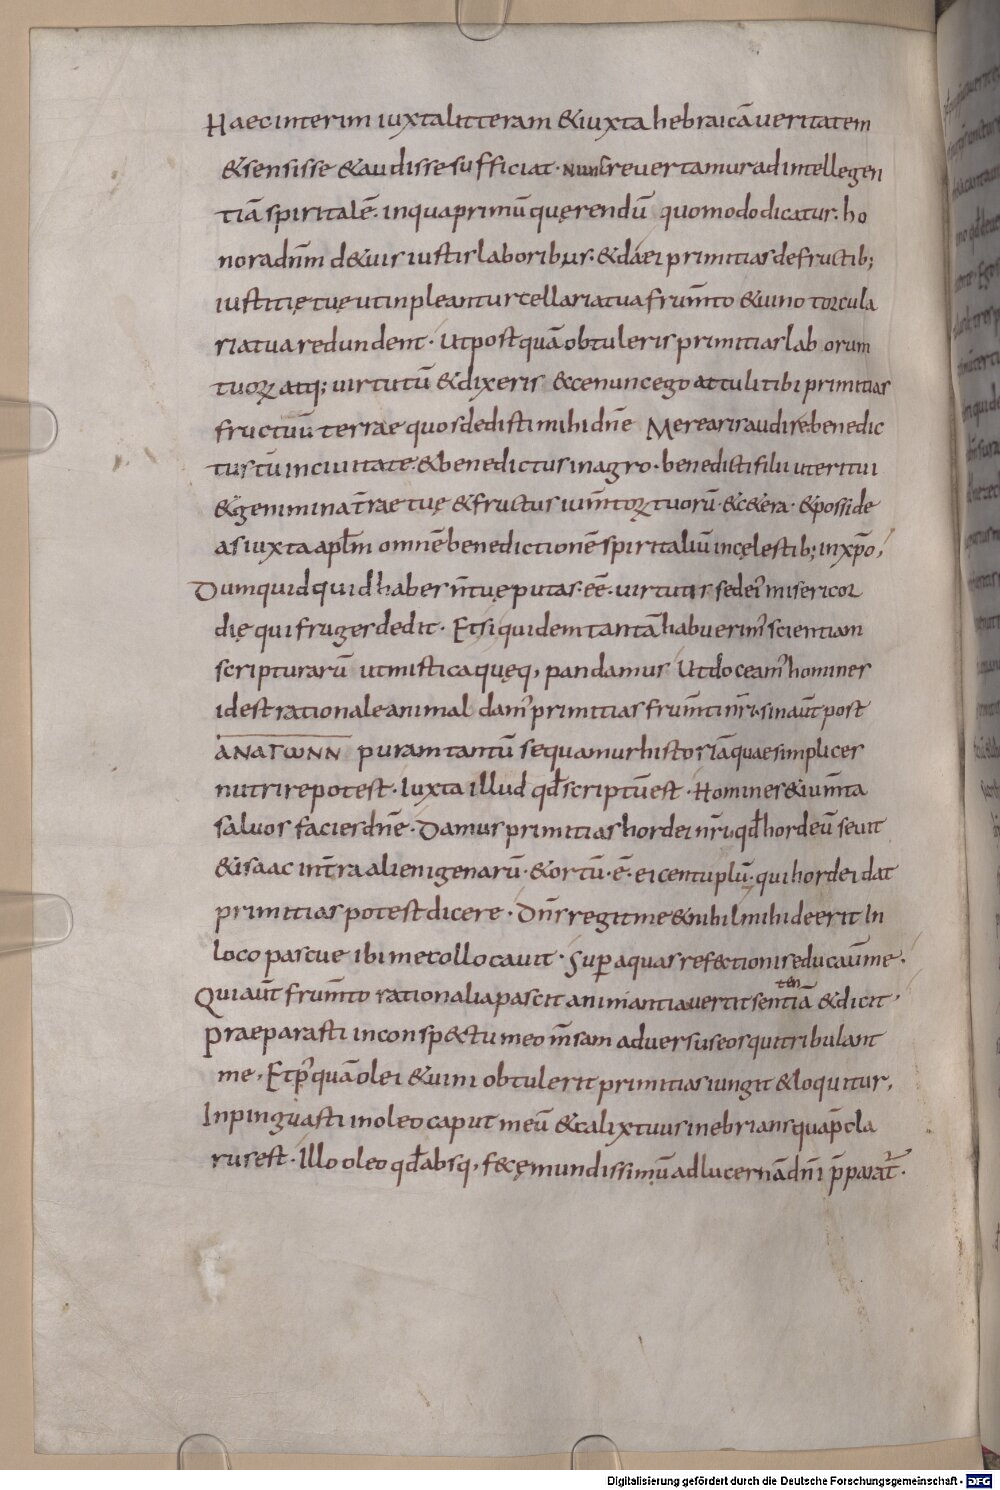 Haec interim iuxta litteram &iuxta hebraicā ueritatem
&sensisse &audisse sufficiat· Nunc reuertamur ad intellegen
tiā spiritalē· inqua primū quęrendū quomodo dicatur· ho
nora dn̄m d&uis iustis laborib,us· &da ei primitias de fructib;
iustitię tuę ut inpleantur cellaria tua frum̄to &uino torcula
ria tua redundent· Ut postquā obtuleris primitias lab orum
tuoꝝ atq; uirtutū &dixeris &ce nunc ego attuli tibi primitias
fructuū terrae quos dedisti mihi dn̄e Merearis audire benedic
tus tū in ciuitate &benedictus in agro· benedicti filii uteri tui
&genimina t̄rae tuę &fructus ium̄toꝝ tuorū· &c&era· &posside
as iuxta apl̄m omnē benedictionē spiritaliū in cęlestib; in xp̄o,
Dum quid quid habes n̄ tuę putas· ēē· uirtutis sed ei' misericor
dię qui fruges dedit· Et si quidem tantā habuerim' scientiam
scripturarū ut mistica quęq, pandamus Ut doceam' homines
id est rationale animal dam' primitias frum̄ti nr̄i· sin aūt post
ΑΝΑΓΩΝΝ puram tantū sequamur historiā quae simplices
nutrire potest· Iuxta illud qđ scriptū est· Homines &ium̄ta
saluos facies dn̄e· Damus primitias hordei nr̄i· qđ hordeū seuit
&isaac in t̄ra alienigenarū· &ortū· ē· ei centuplū· qui hordei dat
primitias potest dicere· Dn̄s regit me &nihil mihi deerit In
loco pascue ibi me collocauit· Sup aquas refectionis educauīt me·
Qui aūt frum̄to rationalia pascit animantia uertit sentiā &dicit,
ten
praeparasti in conspectu meo m̄sam aduersus eos qui tribulant
me, Et p' quā olei &uini obtulerit primitias iungit &loquitur,
Inpinguasti in oleo caput meū &calix tuus inebrians quā p̄cla
rus est· Illo oleo qđ absq, fęcę mundissimū ad lucernā dn̄i p̄parat̄·
Digitalisierung gefördert durch die Deutsche Forschungsgemeinschaft - DFG